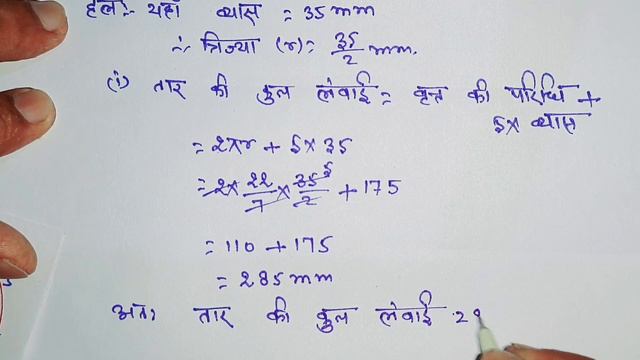 हल:- यहाँ व्यास = 35 mm
∴ त्रिज्या (r) = 35/2 mm.
(i) तार की कुल लंबाई = वृत्त की परिधि +
5 × व्यास
= 2πr + 5 × 35
= 2 × 22/7 × 35/2 5 + 175
= 110 + 175
= 285 mm
अतः तार की कुल लंबाई 28